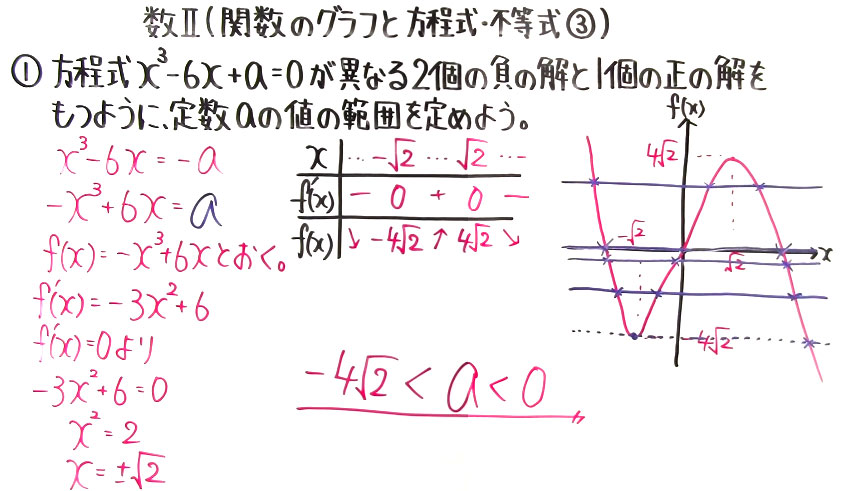 数Ⅱ(関数のグラフと方程式・不等式③)
① 方程式x³-6x+a=0が異なる2個の負の解と1個の正の解を
もつように、定数aの値の範囲を定めよう。
x³-6x=-a
-x³+6x=a
f(x)=-x³+6xとおく。
f'(x)=-3x²+6
f'(x)=0より
-3x²+6=0
x²=2
x=±√2
x … -√2 … √2 …
f'(x) - 0 + 0 -
f(x) ↘ -4√2 ↑ 4√2 ↘
-4√2<a<0
f(x)
4√2
-√2
√2
x
-4√2